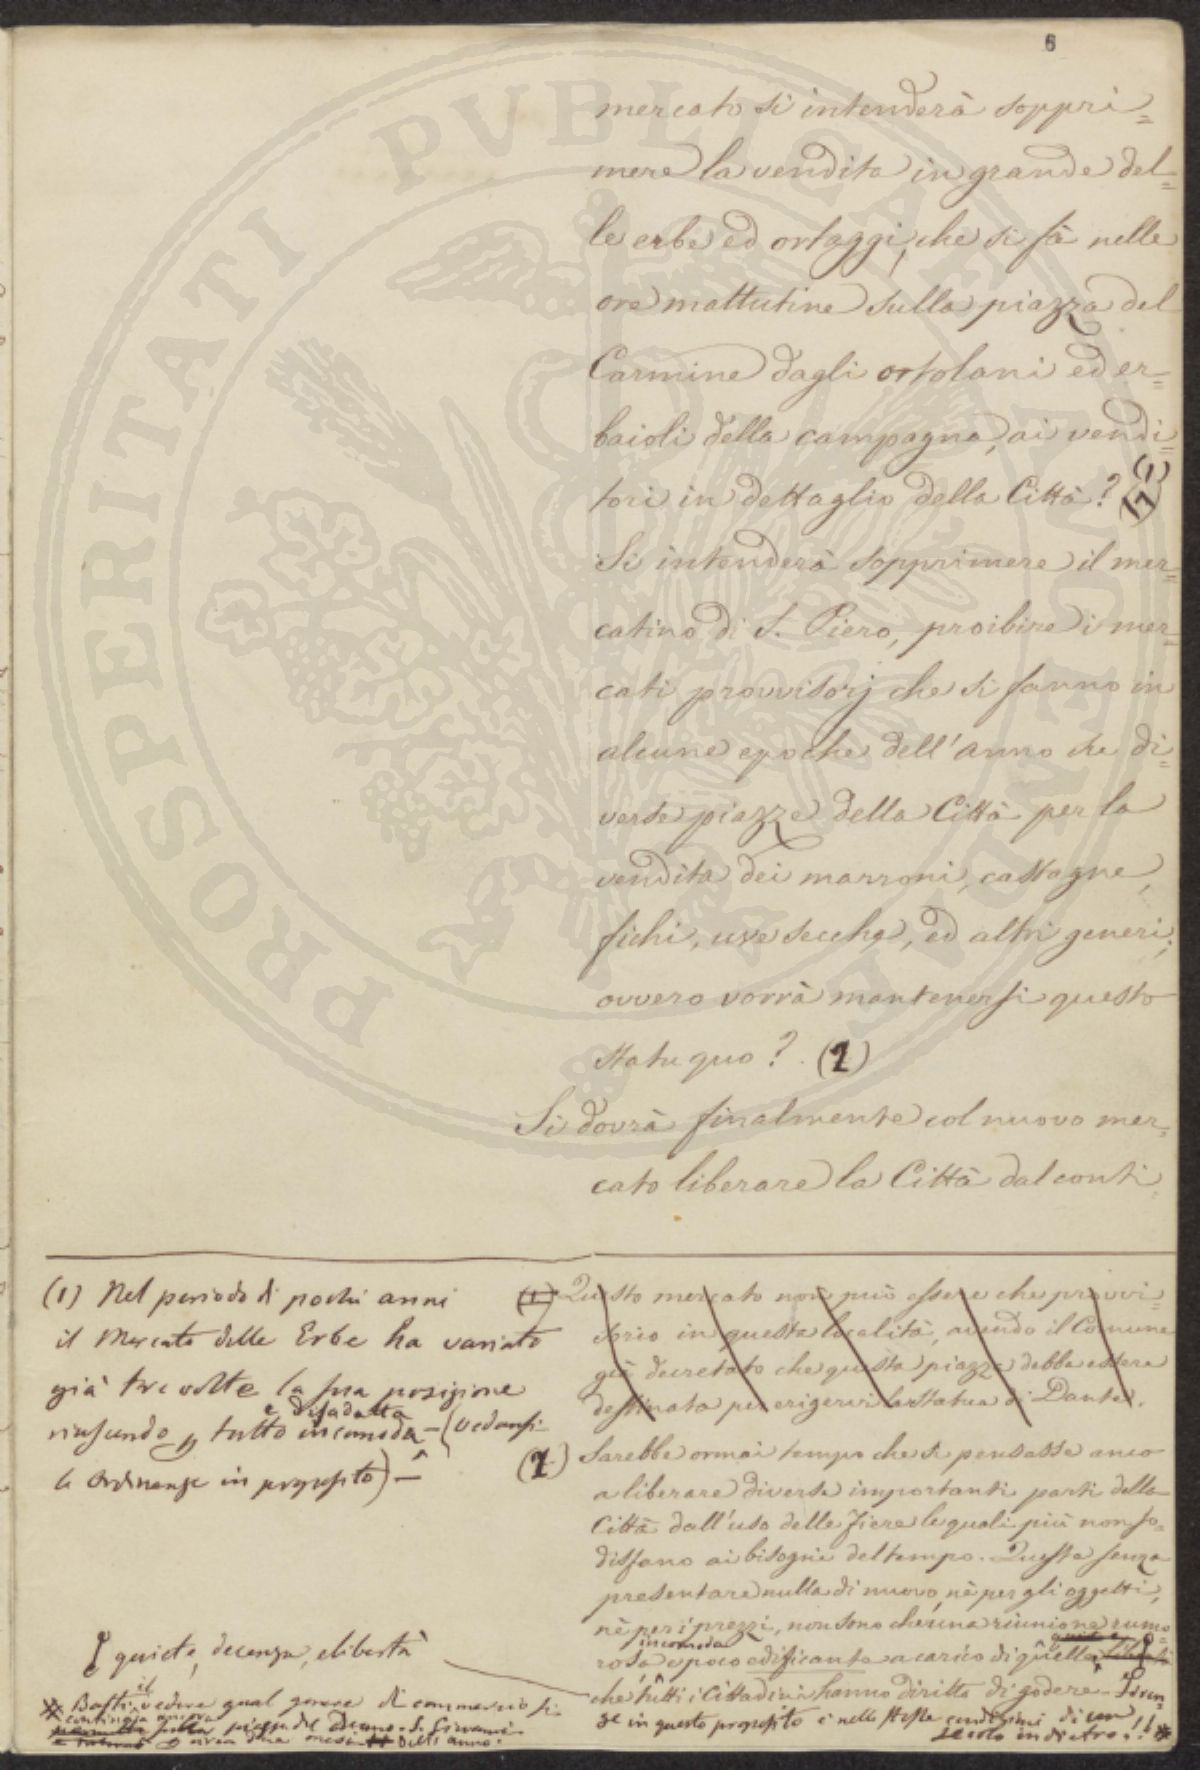 6
mercato si intenderà soppri=
mere la vendita in grande del=
le erbe ed ortaggi, che si fà nelle
ore mattutine sulla piazza del
Carmine dagli ortolani ed er=
baioli della campagna, ai vendi=
tori in dettaglio della Città? (1)
Si intenderà sopprimere il mer=
catino di S. Piero, proibire i mer=
cati provvisorj che si fanno in
alcune epoche dell'anno su di=
verse piazze della Città per la
vendita dei marroni, castagne,
fichi, uve secche, ed altri generi;
ovvero vorrà mantenersi questo
statu quo? (2)
Si dovrà finalmente col nuovo mer=
cato liberare la Città dal conti
(1) Nel periodo di pochi anni
il Mercato delle Erbe ha variato
già tre volte la sua posizione
e disadatta
riuscendo tutto incomoda - (vedansi
le Ordinanze in proposito) -
(1) Questo mercato non può essere che provvi=
sorio in questa località, avendo il Comune
già decretato che questa piazza debba essere
destinata per erigervi la statua di Dante.
(2) Sarebbe ormai tempo che si pensasse anco
a liberare diverse importanti parti della
Città dall'uso delle fiere le quali più non so=
disfano ai bisogni del tempo. Queste senza
presentare nulla di nuovo, nè per gli oggetti,
nè per i prezzi, non sono che una riunione rumo=
incomoda
rosa e poco edificante a carico di quella
che tutti i Cittadini hanno diritto di godere.
se in questo proposito è nelle stesse condizioni di un
secolo indietro!!
quiete, decenza, e libertà
il
Basti vedere qual genere di commercio si
continoia ancora
sulla piazza del Duomo e S. Giovanni
dell'anno.
PROSPERITATI PUBLICAE AUGENDAE